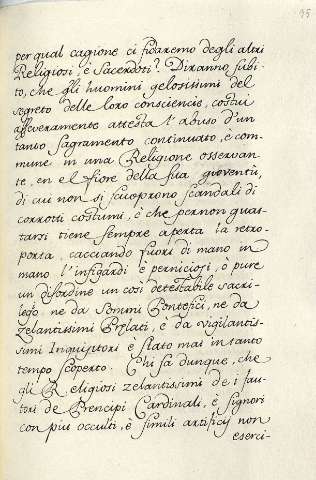 35
per qual cagione ci fidaremo degli altri
Religiosi, è Sacerdoti? Diranno subi-
to, che gli huomini gelosissimi del
segreto delle loro conscienze, costui
asseveramente attesta l'abuso d'un
tanto Sagramento continuato, è com-
mune in una Religione osservan-
te, en el fiore della sua gioventù,
di cui non si scuoprono scandali di
corrotti costumi, è che per non guas-
tarsi tiene sempre aperta la retro-
porta, cacciando fuori di mano in
mano l'infigardi è perniciosi, ò pure
un disordine un così detestabile sacri-
lego, ne da Sommi Pontefici, ne da
zelantissimi Prelati, e da vigilantis-
simi Inquisitori è stato mai in tanto
tempo scoperto. Chi sa dunque, che
gli Religiosi zelantissimi de i fau-
tori de Prencipi Cardinali, è signori
con più occulti, è simili artificij non
eserci-